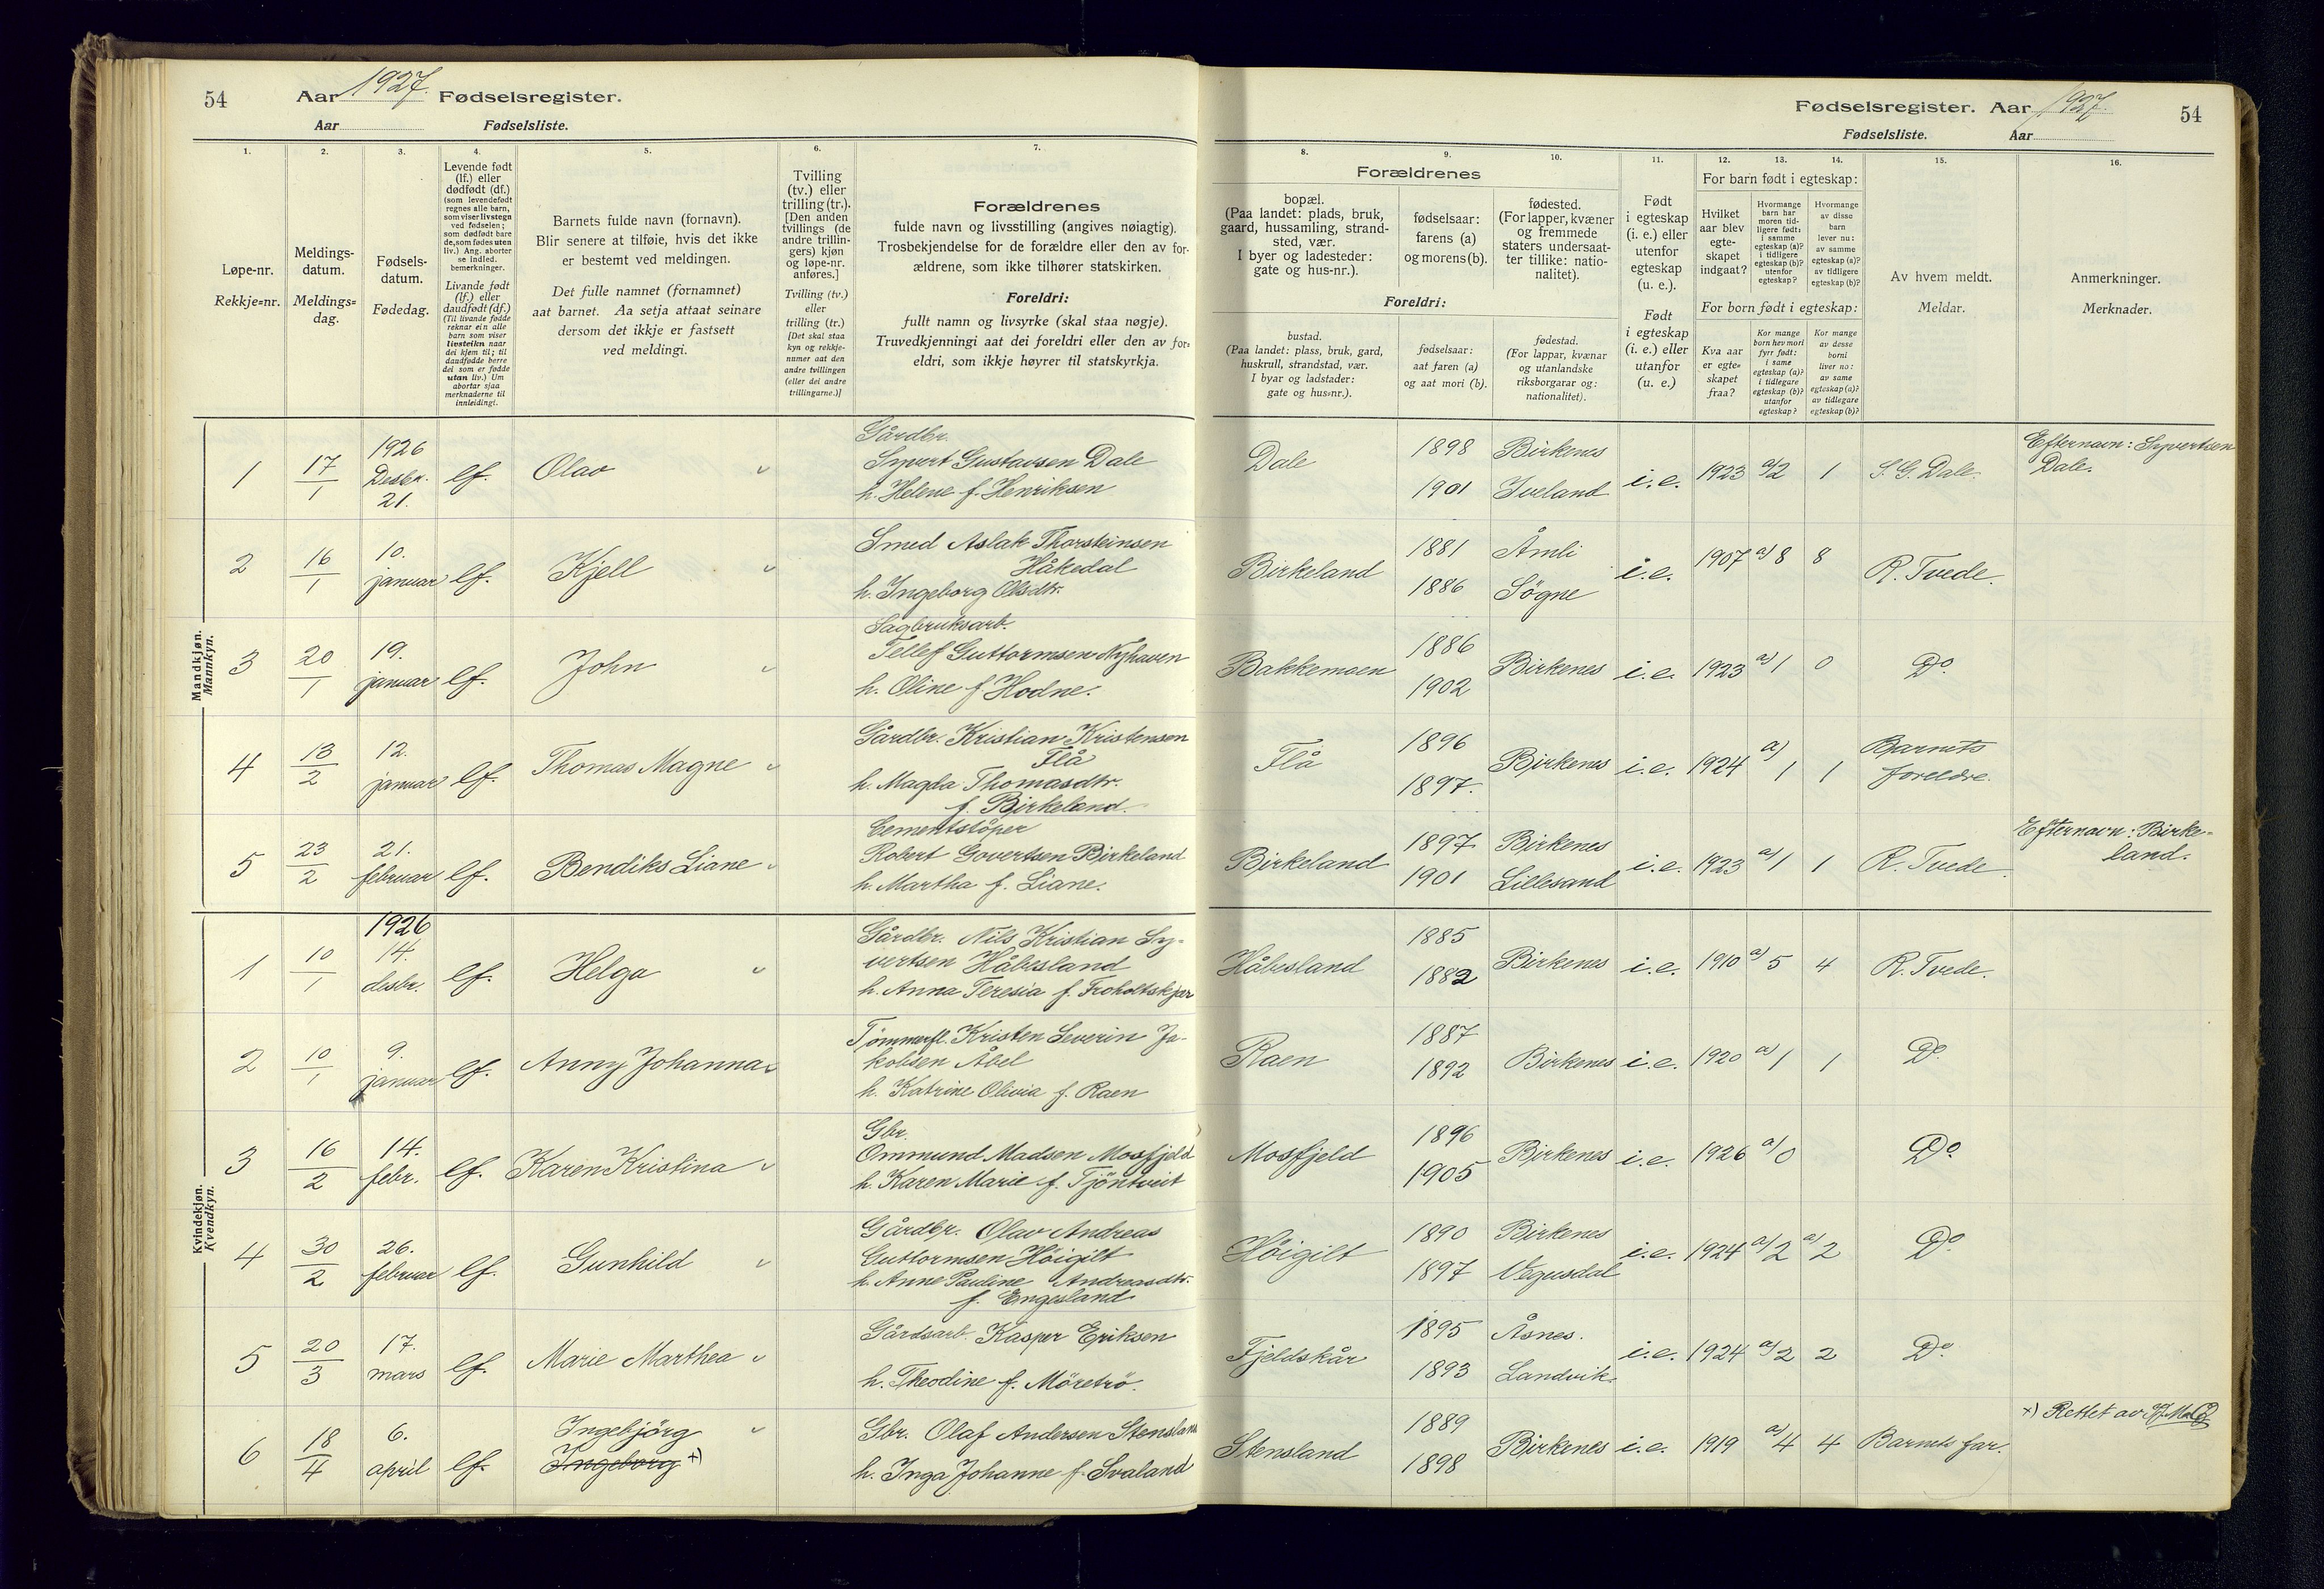 54 Aar 1927. Fødselsregister.
Aar Fødselsliste.
1. 2. 3. 4. 5. 6. 7.
Løpe-nr.
Rekkje=nr.
Meldings-
datum.
Meldings=
dag.
Fødsels-
datum.
Fødedag.
Levende født
(lf.) eller
dødfødt (df.)
(som levendefødt
regnes alle barn,
som viser livstegn
ved fødselen;
som dødfødt bare
de, som fødes uten
liv.) Ang. aborter
se indled.
bemerkninger.
Livande født
(lf.) eller
daudfødt (df.)
(Til livande fødde
reknar ein alle
barn som viser
livsteikn naar
dei kjem til; til
daudfødde berre
dei som er fødde
utan liv.) Um
abortar sjaa
merknaderne til
innleidingi.
Barnets fulde navn (fornavn).
Blir senere at tilføie, hvis det ikke
er bestemt ved meldingen.
Det fulle namnet (fornamnet)
aat barnet. Aa setja attaat seinare
dersom det ikkje er fastsett
ved meldingi.
Tvilling
(tv.) eller
trilling (tr.).
[Den anden
tvillings (de
andre trillin-
gers) kjøn
og løpe-nr.
anføres.]
Tvilling (tv.)
eller
trilling (tr.)
[Det skal staa
kyn og rekkje-
numer aat den
andre tvillingen
(eller dei andre
trillingarne.)]
Forældrenes
fulde navn og livsstilling (angives nøiagtig).
Trosbekjendelse for de forældre eller den av for-
ældrene, som ikke tilhører statskirken.
Foreldri:
fullt namn og livsyrke (skal staa nøgje).
Truvedkjenningi aat dei foreldri eller den av for=
eldri, som ikkje høyrer til statskyrkja.
Fødselsregister. Aar 1927. 54
Fødselsliste. Aar
8. 9. 10. 11. 12. 13. 14. 15. 16.
Forældrenes
bopæl.
(Paa landet: plads, bruk,
gaard, hussamling, strand-
sted, vær.
I byer og ladesteder:
gate og hus-nr.).
fødselsaar:
farens (a)
og morens (b).
fødested.
(For lapper, kvæner
og fremmede
staters undersaat-
ter tillike: natio-
nalitet).
Foreldri:
bustad.
(Paa landet: plass, bruk, gard,
huskrull, strandstad, vær.
I byar og ladstader:
gate og hus=nr.).
fødselsaar:
aat faren (a)
og aat mori (b).
fødestad.
(For lappar, kvænar
og utanlandske
riksborgarar og:
nationalitet).
Født
i egteskap
(i. e.) eller
utenfor
egteskap
(u. e.).
Født
i egteskap
(i. e.) eller
utanfor
(u. e.)
For barn født i egteskap:
Hvilket
aar blev
egte-
skapet
indgaat?
Hvormange
barn har
moren tid-
ligere født:
i samme
egteskap (a)?
i tidligere
egteskap (b)?
utenfor
egteskap?
Hvormange
av disse
barn
lever nu:
av samme
egteskap (a)?
av tidligere
egteskap (b)?
For born født i egteskap:
Kva aar
er egte=
skapet
fraa?
Kor mange
born hev mori
fyrr født:
i same
egteskap (a)?
i tidlegare
egteskap (b)?
utanfor
egteskap?
Kor mange
av desse
borni
liver no:
av same
egteskap (a)?
av tidlegare
egteskap (b)?
Av hvem meldt.
Meldar.
Anmerkninger.
Merknader.
Mandkjøn.
Mannkyn.
1 17/1 1926 Desbr. 21. lf. Olav
Gårdbr.
Syvert Gustavsen Dale
h. Helene f. Henriksen
Dale 1898 1901 Birkenes Iveland i.e. 1923 a/2 1 S. G. Dale. Efternavn: Syvertsen Dale.
2 16/1 10. januar lf. Kjell
Smed Aslak Thorsteinsen
Håkedal
h. Ingeborg Olsdtr.
Birkeland 1881 1886 Åmli Sögne i.e. 1907 a) 8 8 R. Tvede.
3 20/1 19. januar lf. John
Sagbruksarb.
Tellef Guttormsen Nyhaven
h. Oline f. Hodne.
Bakkemoen 1886 1902 Birkenes i.e. 1923 a) 1 0 Do.
4 13/2 12. januar lf. Thomas Magne
Gårdbr. Kristian Kristensen
Flå
h. Magda Thomasdtr.
f. Birkeland.
Flå 1896 1897. Birkenes i.e. 1924 a) 1 1 Barnets foreldre.
5 23/2 21. februar lf. Bendiks Liane
Cementstöper
Robert Govertsen Birkeland
h. Martha f. Liane.
Birkeland 1897 1901 Birkenes Lillesand i.e. 1923 a) 1 1 R. Tvede. Efternavn: Birke-
land.
Kvindekjøn.
Kvendkyn.
1 10/1 1926 14. desbr. lf. Helga
Gårdbr. Nils Kristian Sy-
vertsen Håbesland
h. Anna Teresia f. Froholtskjær
Håbesland 1885 1882 Birkenes i.e. 1910 a) 5 4 R. Tvede.
2 10/1 9. januar lf. Anny Johanna
Tömmerfl. Kristen Severin Ja-
kobsen Åbel
h. Katrine Olivia f. Raen
Raen 1887 1892 Birkenes i.e. 1920 a) 1 1 Do.
3 16/2 14. febr. lf. Karen Kristina
Gbr.
Ommund Madsen Mosfjeld
h. Karen Marie f. Tjöntveit
Mosfjeld 1896 1905 Birkenes i.e. 1926 a) 0 Do.
4 30/2 26. februar lf. Gunhild
Gårdbr. Olav Andreas
Guttormsen Höigilt
h. Anne Pauline Andreasdtr.
f. Engesland
Höigilt 1890 1897 Birkenes Vegusdal i.e. 1924 a/2 a/2 Do.
5 20/3 17. mars lf. Marie Marthea
Gårdsarb. Kasper Eriksen
h. Theodine f. Möretrö.
Fjeldskår 1895 1893 Åsnes. Landvik. i.e. 1924 a/2 2 Do.
6 18/4 6. april lf. Ingebjörg
Ingeborg x)
Gbr. Olaf Andersen Stensland
h. Inga Johanne f. Svaland
Stensland 1889 1898 Birkenes i.e. 1919 a/4 4 Barnets far. x) Rettet av